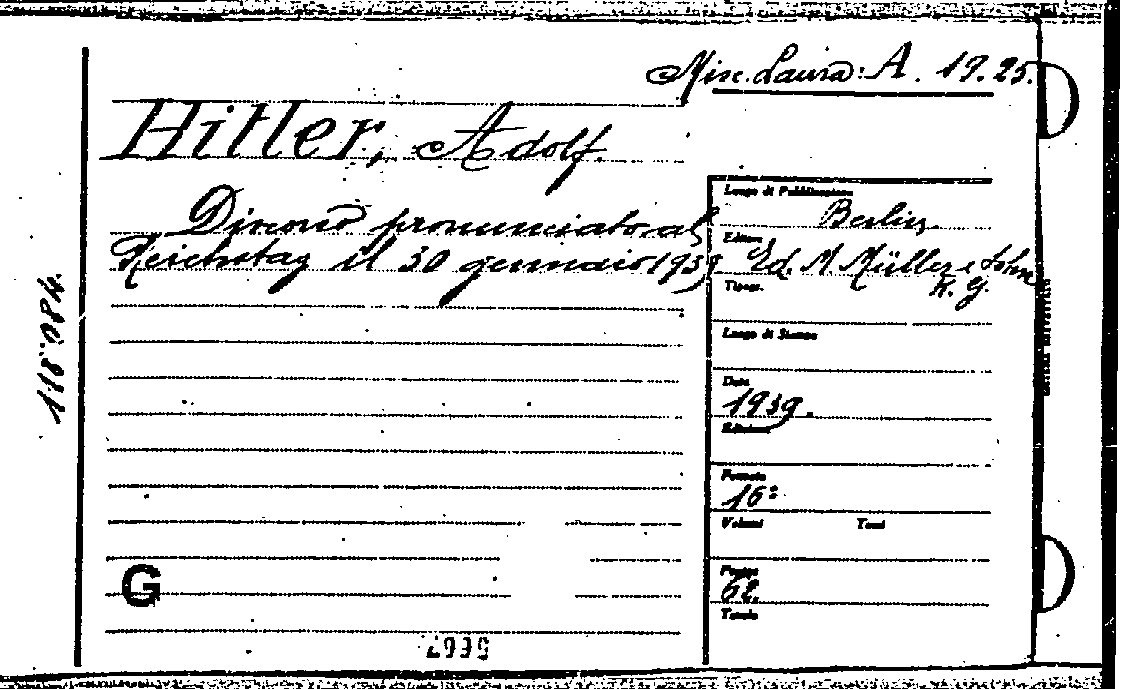 Misc. Laura: A. 19.25.
Hitler, Adolf.
Discorso pronunciato al
Reichstag il 30 gennaio 1939
Luogo di Pubblicazione
Berlin.
Editore
Ed. M Müller e Sohn
K. G.
Tipogr.
Luogo di Stampa
Data
1939.
Edizione
Formato
16°
Volumi Tomi
Pagine
62.
Tavole
G
118.084